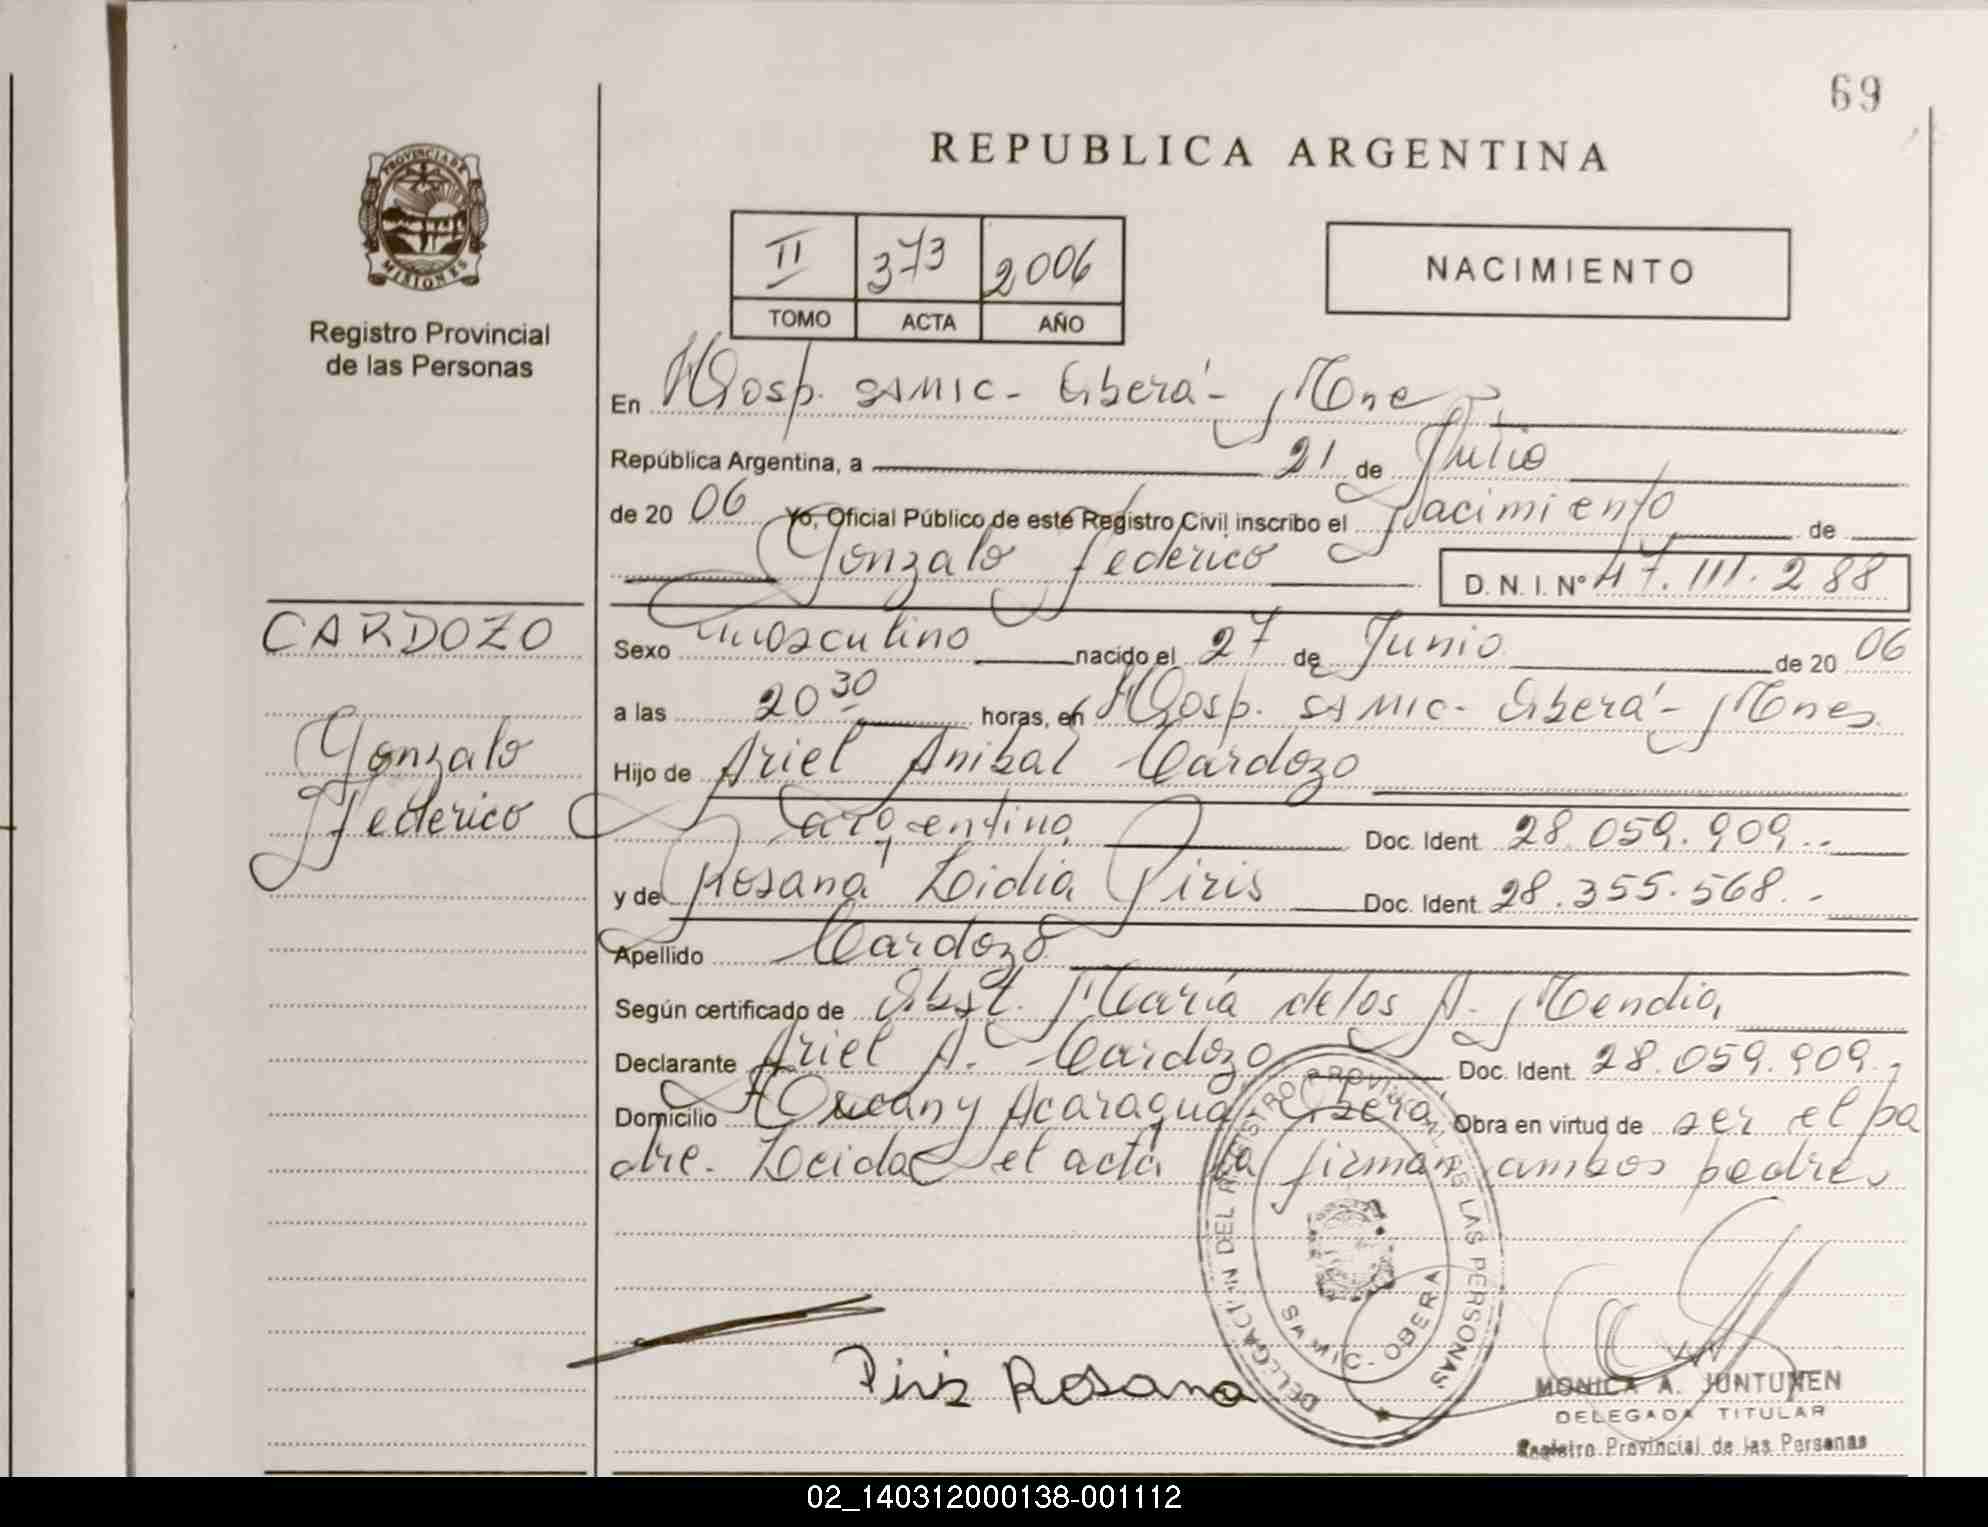 69
REPUBLICA ARGENTINA
PROVINCIA DE
MISIONES
Registro Provincial
de las Personas
II 373 2006
TOMO ACTA AÑO
NACIMIENTO
En Hosp. SAMIC - Oberá - Mnes
República Argentina, a 21 de Julio
de 2006 Yo, Oficial Público de este Registro Civil inscribo el Nacimiento de
Gonzalo Federico D. N. I. Nº 47.111.288
CARDOZO
Gonzalo
Federico
Sexo masculino nacido el 27 de Junio de 2006
a las 20 30 horas, en Hosp. SAMIC - Oberá - Mnes
Hijo de Ariel Anibal Cardozo
argentino Doc. Ident. 28.059.909.-
y de Rosana Lidia Piris Doc. Ident. 28.355.568.-
Apellido Cardozo
Según certificado de Obst. María de los A. Mendia
Declarante Ariel A. Cardozo Doc. Ident. 28.059.909.-
Domicilio Acaragua - Oberá Obra en virtud de ser el pa
dre. Leida el acta la firman ambos padres
DELEGACION DEL REGISTRO PROVINCIAL DE LAS PERSONAS
SAMIC - OBERA
Piris Rosana
MONICA A. JUNTUNEN
DELEGADA TITULAR
Registro Provincial de las Personas
02_140312000138-001112